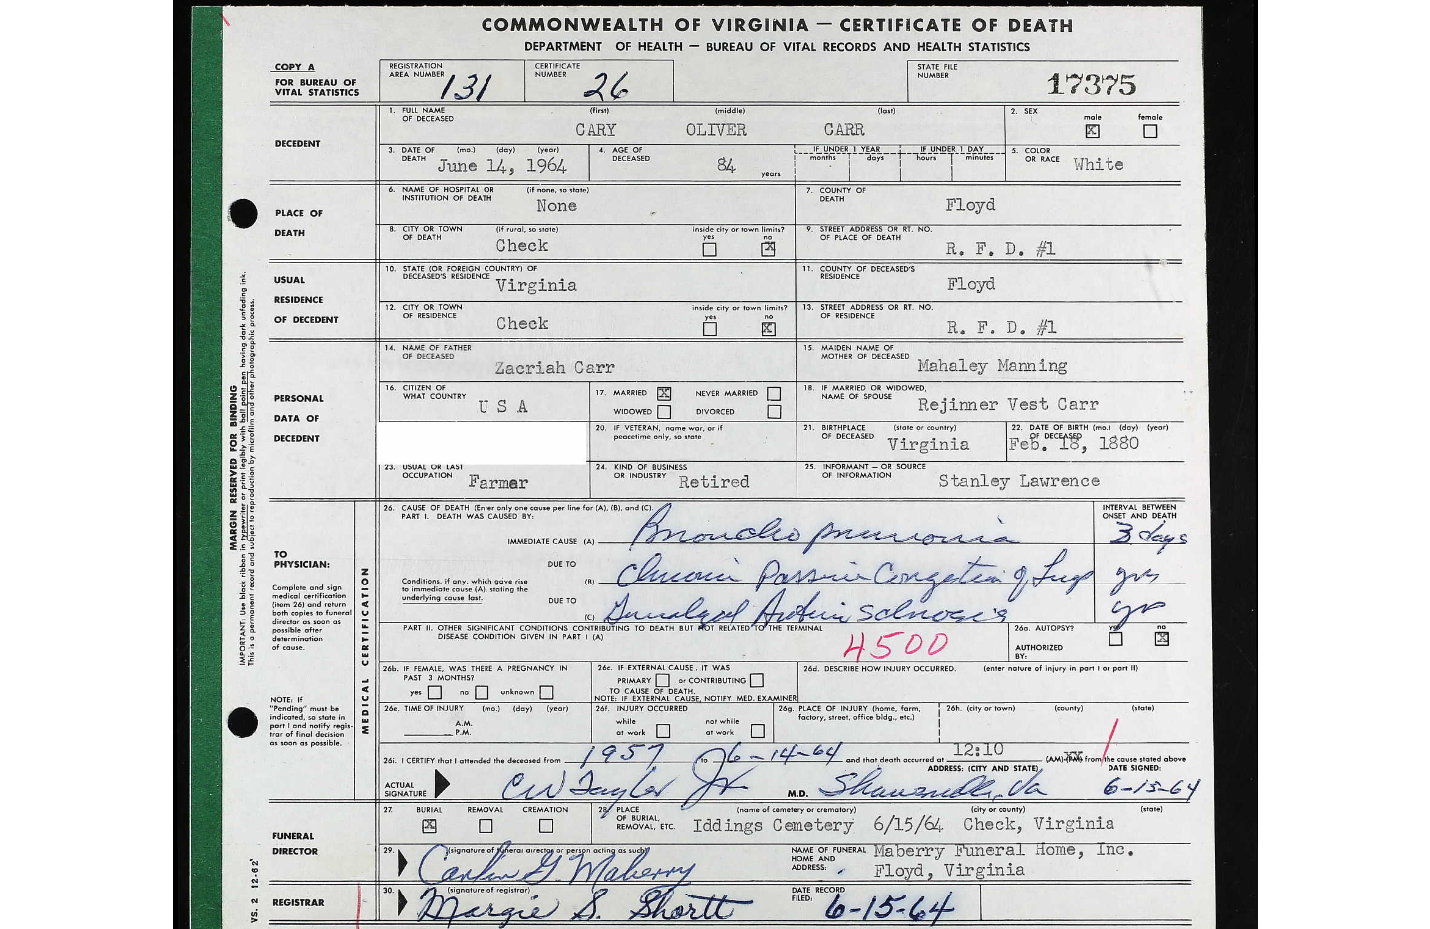 COMMONWEALTH OF VIRGINIA — CERTIFICATE OF DEATH
DEPARTMENT OF HEALTH — BUREAU OF VITAL RECORDS AND HEALTH STATISTICS
COPY A
FOR BUREAU OF VITAL STATISTICS
REGISTRATION AREA NUMBER 131
CERTIFICATE NUMBER 26
STATE FILE NUMBER 17375
DECEDENT
1. FULL NAME OF DECEASED (first) (middle) (last)
CARY OLIVER CARR
2. SEX male ☒ female ☐
3. DATE OF DEATH (mo.) (day) (year) June 14, 1964
4. AGE OF DECEASED 84 years
IF UNDER 1 YEAR months days
IF UNDER 1 DAY hours minutes
5. COLOR OR RACE White
PLACE OF DEATH
6. NAME OF HOSPITAL OR INSTITUTION OF DEATH (if none, so state) None
7. COUNTY OF DEATH Floyd
8. CITY OR TOWN OF DEATH (if rural, so state) Check
inside city or town limits? yes ☐ no ☒
9. STREET ADDRESS OR RT. NO. OF PLACE OF DEATH R. F. D. #1
USUAL RESIDENCE OF DECEDENT
10. STATE (OR FOREIGN COUNTRY) OF DECEASED'S RESIDENCE Virginia
11. COUNTY OF DECEASED'S RESIDENCE Floyd
12. CITY OR TOWN OF RESIDENCE Check
inside city or town limits? yes ☐ no ☒
13. STREET ADDRESS OR RT. NO. OF RESIDENCE R. F. D. #1
PERSONAL DATA OF DECEDENT
14. NAME OF FATHER OF DECEASED Zacriah Carr
15. MAIDEN NAME OF MOTHER OF DECEASED Mahaley Manning
16. CITIZEN OF WHAT COUNTRY U S A
17. MARRIED ☒ NEVER MARRIED ☐
WIDOWED ☐ DIVORCED ☐
18. IF MARRIED OR WIDOWED, NAME OF SPOUSE Rejinner Vest Carr
20. IF VETERAN, name war, or if peacetime only, so state
21. BIRTHPLACE OF DECEASED (state or country) Virginia
22. DATE OF BIRTH (mo.) (day) (year) OF DECEASED Feb. 18, 1880
23. USUAL OR LAST OCCUPATION Farmer
24. KIND OF BUSINESS OR INDUSTRY Retired
25. INFORMANT — OR SOURCE OF INFORMATION Stanley Lawrence
MARGIN RESERVED FOR BINDING
IMPORTANT: Use black ribbon in typewriter or print legibly with ball point pen having dark unfading ink.
This is a permanent record and subject to reproduction by microfilm and other photographic process.
TO PHYSICIAN:
Complete and sign medical certification (item 26) and return both copies to funeral director as soon as possible after determination of cause.
NOTE: IF "Pending" must be indicated, so state in part I and notify registrar of final decision as soon as possible.
MEDICAL CERTIFICATION
26. CAUSE OF DEATH (Enter only one cause per line for (A), (B), and (C).
PART I. DEATH WAS CAUSED BY:
INTERVAL BETWEEN ONSET AND DEATH
IMMEDIATE CAUSE (A) Broncho pneumonia 3 days
Conditions, if any, which gave rise to immediate cause (A) stating the underlying cause last.
DUE TO (B) Chronic Passive Congestion of Lungs yrs
DUE TO (C) Generalized Arterio sclerosis yrs
PART II. OTHER SIGNIFICANT CONDITIONS CONTRIBUTING TO DEATH BUT NOT RELATED TO THE TERMINAL DISEASE CONDITION GIVEN IN PART I (A)
4500
26a. AUTOPSY? yes ☐ no ☒
AUTHORIZED BY:
26b. IF FEMALE, WAS THERE A PREGNANCY IN PAST 3 MONTHS?
yes ☐ no ☐ unknown ☐
26c. IF EXTERNAL CAUSE, IT WAS
PRIMARY ☐ or CONTRIBUTING ☐
TO CAUSE OF DEATH.
NOTE: IF EXTERNAL CAUSE, NOTIFY MED. EXAMINER
26d. DESCRIBE HOW INJURY OCCURRED. (enter nature of injury in part I or part II)
26e. TIME OF INJURY (mo.) (day) (year)
A.M.
P.M.
26f. INJURY OCCURRED
while at work ☐ not while at work ☐
26g. PLACE OF INJURY (home, farm, factory, street, office bldg., etc.)
26h. (city or town) (county) (state)
26i. I CERTIFY that I attended the deceased from 1957 to 6-14-64 and that death occurred at 12:10 (AM) (PM) from the cause stated above
ACTUAL SIGNATURE CW Taylor Jr M.D.
ADDRESS: (CITY AND STATE) Shawsville, Va
DATE SIGNED: 6-15-64
FUNERAL DIRECTOR
27. BURIAL ☒ REMOVAL ☐ CREMATION ☐
28. PLACE OF BURIAL, REMOVAL, ETC. (name of cemetery or crematory) (city or county) (state)
Iddings Cemetery 6/15/64 Check, Virginia
29. (signature of funeral director or person acting as such)
Carlin G. Maberry
NAME OF FUNERAL HOME AND ADDRESS: Maberry Funeral Home, Inc.
Floyd, Virginia
REGISTRAR
30. (signature of registrar)
Margie S. Shortt
DATE RECORD FILED: 6-15-64
VS. 2 12-62